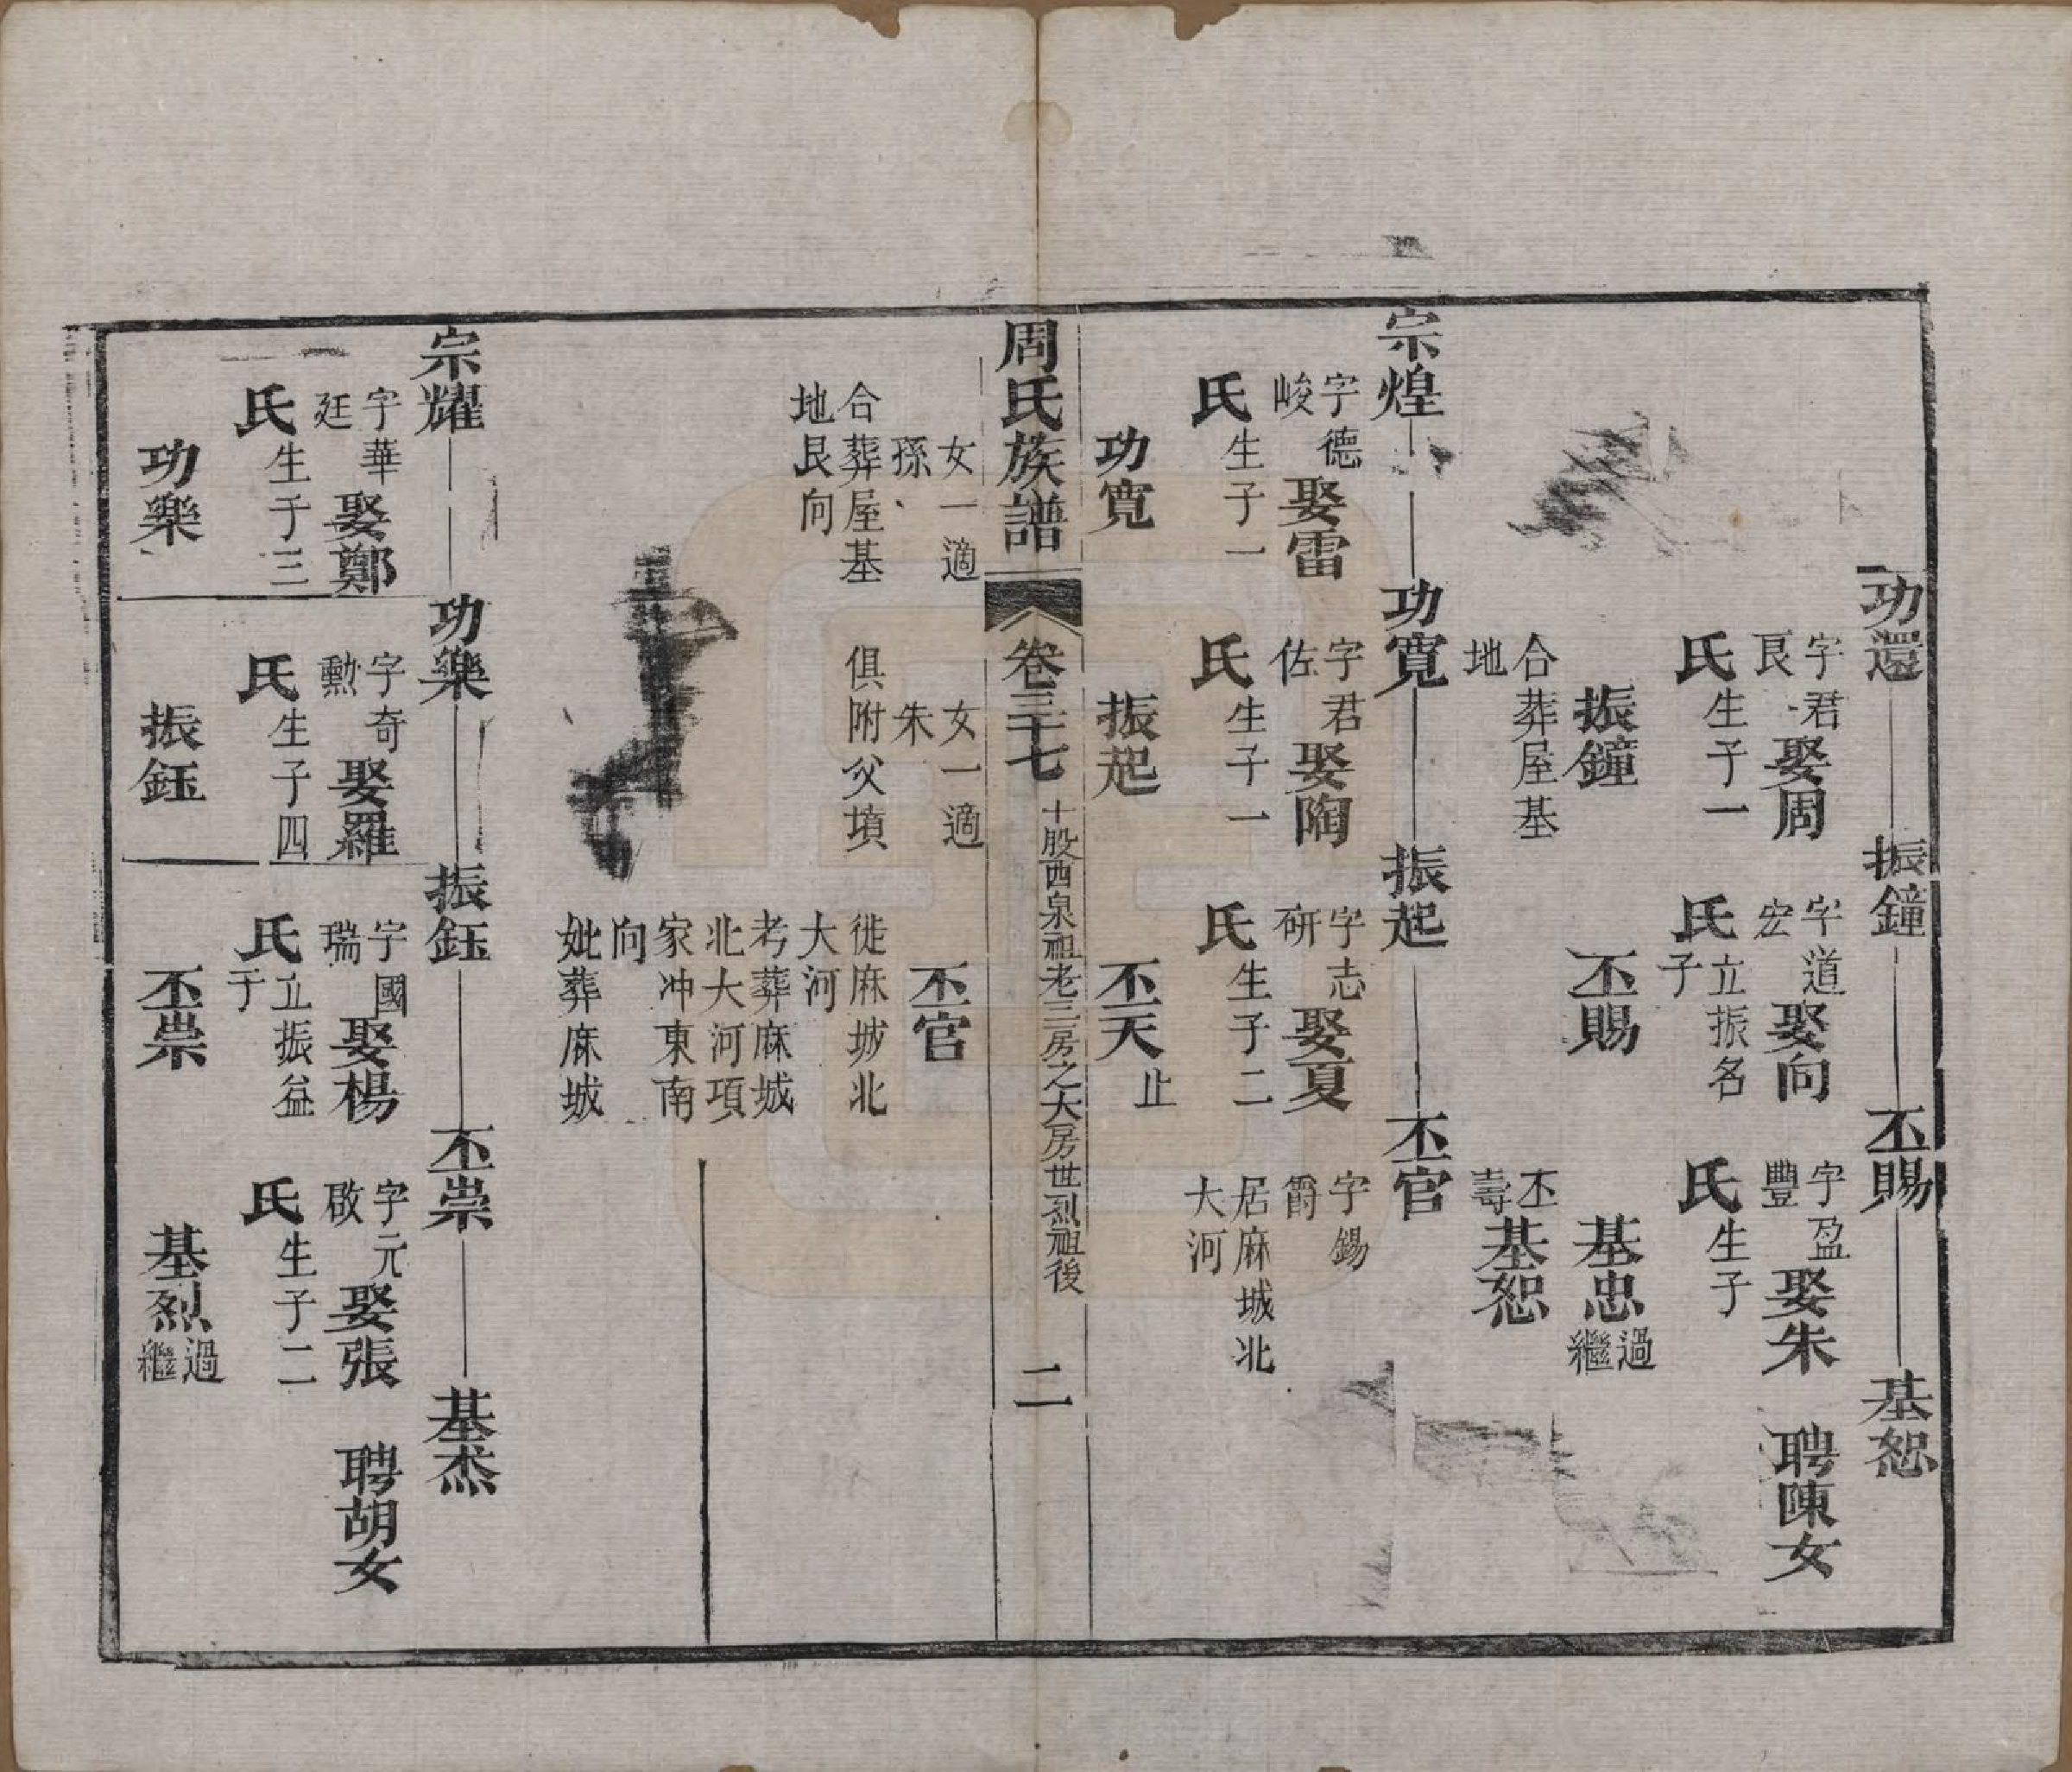 功還 振鐘 丕賜 基恕
字君 字道 字盈
艮 娶周 宏 娶向 豐 娶朱 聘陳女
氏 生子一 氏 立振名 氏 生子
子
振鐘 丕賜 基忠 過
繼
合葬屋基 丕
地 壽 基恕
宗煌 功寬 振起 丕官
字德 字君 字志 字錫
峻 娶雷 佐 娶陶 研 娶夏 爵
氏 生子一 氏 生子一 氏 生子二 居麻城北
大河
功寬 振起 丕天 止
周氏族譜 卷三十七 十股西泉祖老三房之大房世烈祖後 二
女一適 女一適 丕官
孫 朱
合葬屋基 俱附父墳 徙麻城北
地艮向 大河
考葬麻城
北大河項
家冲東南
向
妣葬麻城
宗耀 功樂 振鈺 丕崇 基杰
字華 字奇 字國 字元
廷 娶鄭 勲 娶羅 瑞 娶楊 啟 娶張 聘胡女
氏 生子三 氏 生子四 氏 立振益 氏 生子二
子
功樂 振鈺 丕崇 基烈 過
繼